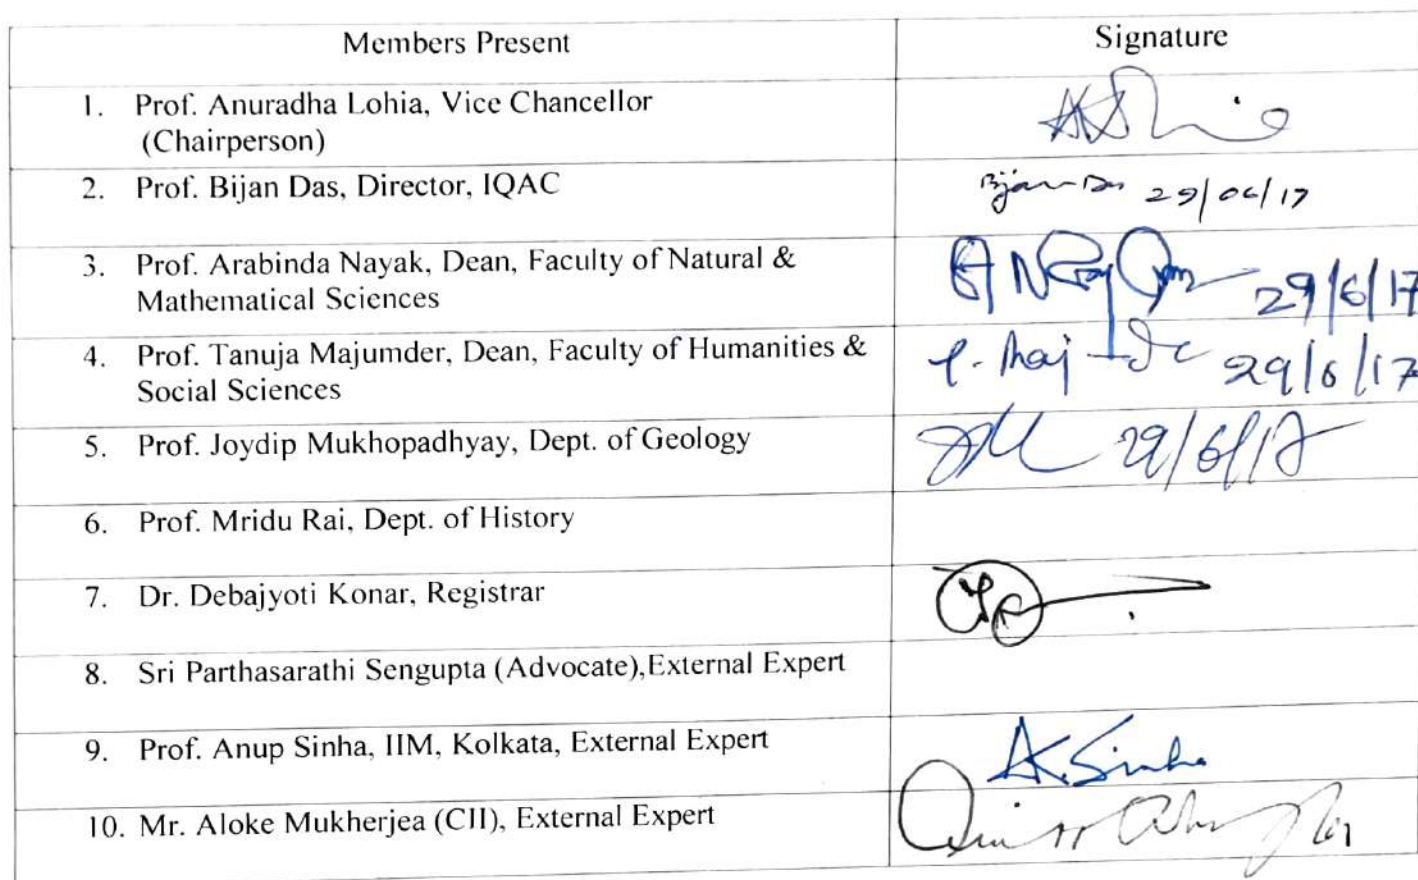 Members Present
Signature
1. Prof. Anuradha Lohia, Vice Chancellor
(Chairperson)
2. Prof. Bijan Das, Director, IQAC
Bijan Das 29/06/17
3. Prof. Arabinda Nayak, Dean, Faculty of Natural &
Mathematical Sciences
29/6/17
4. Prof. Tanuja Majumder, Dean, Faculty of Humanities &
Social Sciences
29/6/17
5. Prof. Joydip Mukhopadhyay, Dept. of Geology
29/6/17
6. Prof. Mridu Rai, Dept. of History
7. Dr. Debajyoti Konar, Registrar
8. Sri Parthasarathi Sengupta (Advocate),External Expert
9. Prof. Anup Sinha, IIM, Kolkata, External Expert
A.K.Sinha
10. Mr. Aloke Mukherjea (CII), External Expert